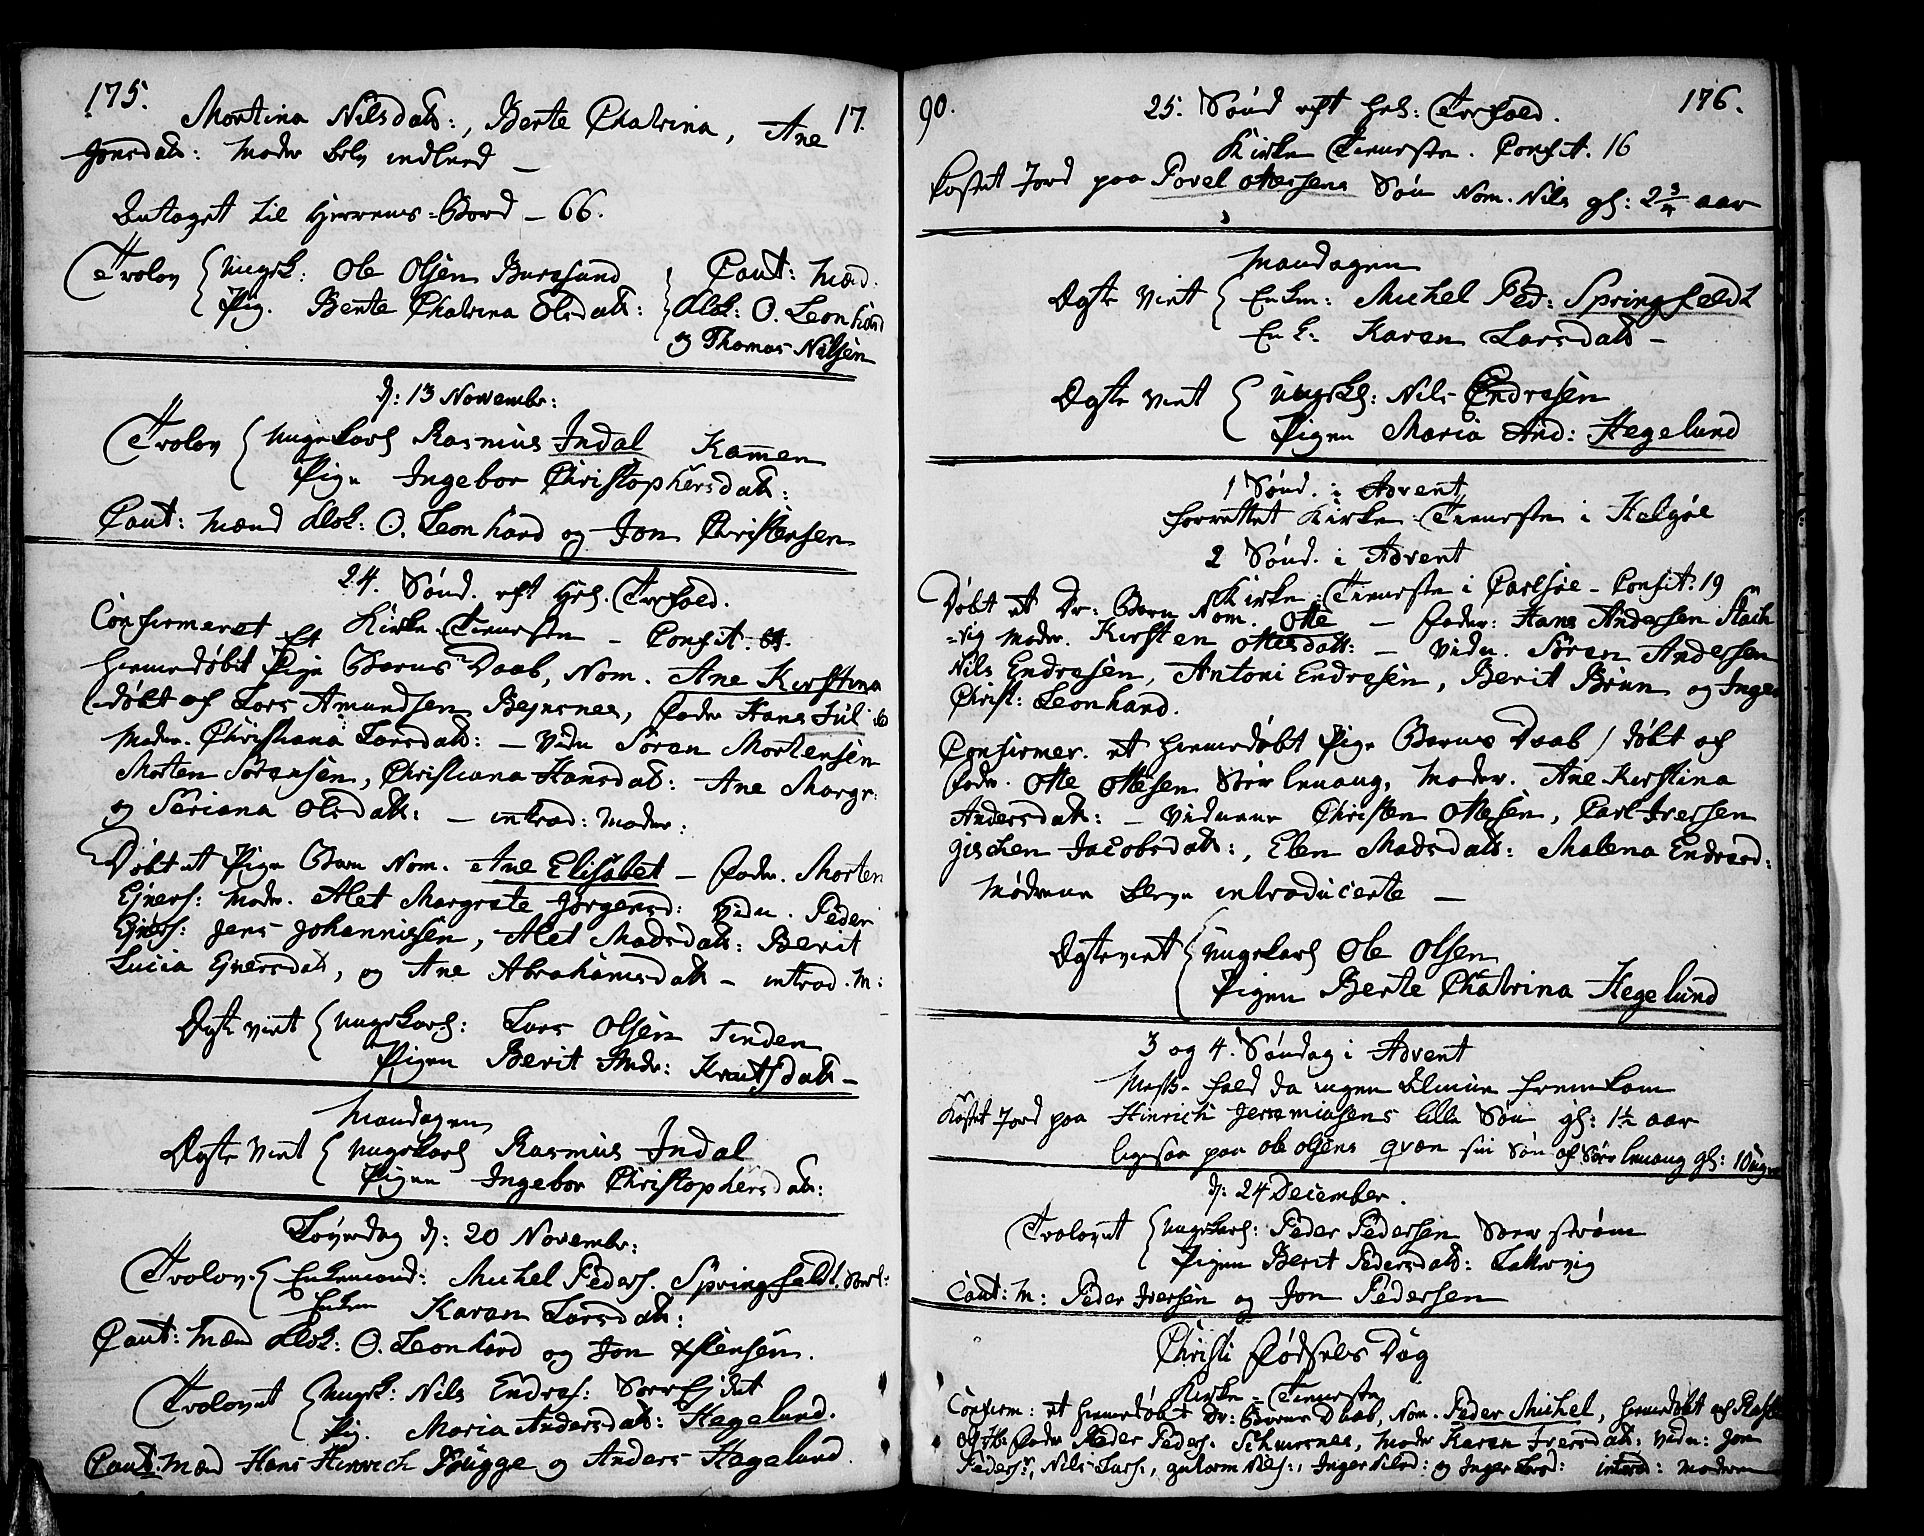 175.
17.
Mortina Nilsdatt:, Berte Chatrina, Ane
Jonsdatt: Moder blev indledt –
Antaget til Herrens-Bord – 66.
Trolov { Ungk: Ole Olsen Buresund } Caut: Mænd
Pig. Bente Chatrina Olsdatt: klok: O. Leonhard
og Thomas Nilsen
d: 13 Novembr:
Trolov { Ungekarl Rasmus Indal Kamen
Pige Ingebor Christophersdatt:
Caut: Mænd klok: O. Leonhard og Jon Christensen
24. Sönd. eft Hel. Trefold.
Kirke-Tieneste – Confit. 64.
Confirmeret Et
hiemedöbt Pige Barns Daab, Nom. Ane Kirstina
döbt af Lars Amundsen Bejnsnes, Fader Hans Jül
Moder. Christiana Larsdatt: – Vidn Sören Mortensen
Morten Sörensen, Christiana Hansdatt: Ane Margr:
og Seriana Olsdatt: – introd: Moder:
Döbt et Pige Barn Nom. Ane Elisabet – Fader. Morten
Ejners: Moder. Alet Margrete Jörgensd: Vidn. Peder
Ejners: Jens Johannissen, Alet Madsdatt: Berit
Lucia Ejnersdatt, og Ane Abrahamsdatt – introd. M:
Ægte viet { Ungekarl: Lars Olsen Tinden
Pigen Berit Andr: Knutsdatt –
Mandagen
Ægte Viet { Ungekarl Rasmus Indal
Pigen Ingebor Christophersdatt:
Löverdag d: 20 Novembr:
Trolov. { Enkemand: Michel Peders. Springfeldt.
Enken Karen Larsdatt:
Caut: Mænd klok: O. Leonhard og Jon Xstensen.
Trolovet { Ungk: Nils Endres: Sörrfjdet
Pig. Maria Andersdatt: Hegelund.
Caut: Mænd Hans Hinrich Brügge og Anders Hegelund.
90.
176.
25. Sönd eft Hel: Trefold.
Kirke Tieneste. Confit. 16
kastet Jord paa Povel Ottesens Sön Nom. Nils gl: 2 3/4 aar
Mandagen
Ægte Viet { Enkm: Michel Ped: Springfeldt
Enk: Karen Larsdatt –
Ægte viet { Ungkl: Nils Endresen
Pigen Maria And: Hegelund
1 Sönd. i Advent
forrettet Kirke-Tieneste i Helgöe
2 Sönd. i Advent
Kirke-Tieneste i Carlsöe – Confit: 19
Döbt et Dr: Barn Nom. Otte – Fader: Hans Andersen Stach
-vig Moder. Kirsten Ottesdatt: – Vidn. Sören Andersen
Nils Endresen, Antoni Endresen, Berit Brun og Inger
Christ: Leonhard.
Confirmer. et hiemedöbt Pige Barns Daab / döbt af
Fader. Otte Ottesen Sörlenang, Moder. Ane Kirstina
Andersdatt: – Vidnerne Christen Ottesen, Carl Iversen
gischen Jacobsdatt:, Elen Madsdatt: Malena Endresd:
Mödrene bleve introducerte –
Ægte viet { Ungekarl Ole Olsen
Pigen Berte Chatrina Hegelund
3 og 4. Söndag i Advent
Mess-fald da ingen Almue fremkom
Kastet Jord paa Hinrich Jeremiasens lille Sön gl: 1 1/2 aar
ligesaa paa Ole Olsens qvæn sin Sön af Sörlenang gl: 10 uger
d: 24 December.
Trolovet { Ungekarl: Peder Pedersen Sörström
Pigen Berit Pedersdatt: Lattervig
Caut: M: Peder Iversen og Jon Pedersen
Christi Födsels Dag
Kirke-Tieneste
Confirm: et hiemedöbt Dr: Barns Daab, Nom. Peder Michel, hiemedöbt af
Fader Peder Peders. Moder Karen Iversdatt: Vidn: Jon
Peders:, Nils Lars:, Gutorm Nils:, Inger Nilsd: og Inger Larsd: introd: Moderen